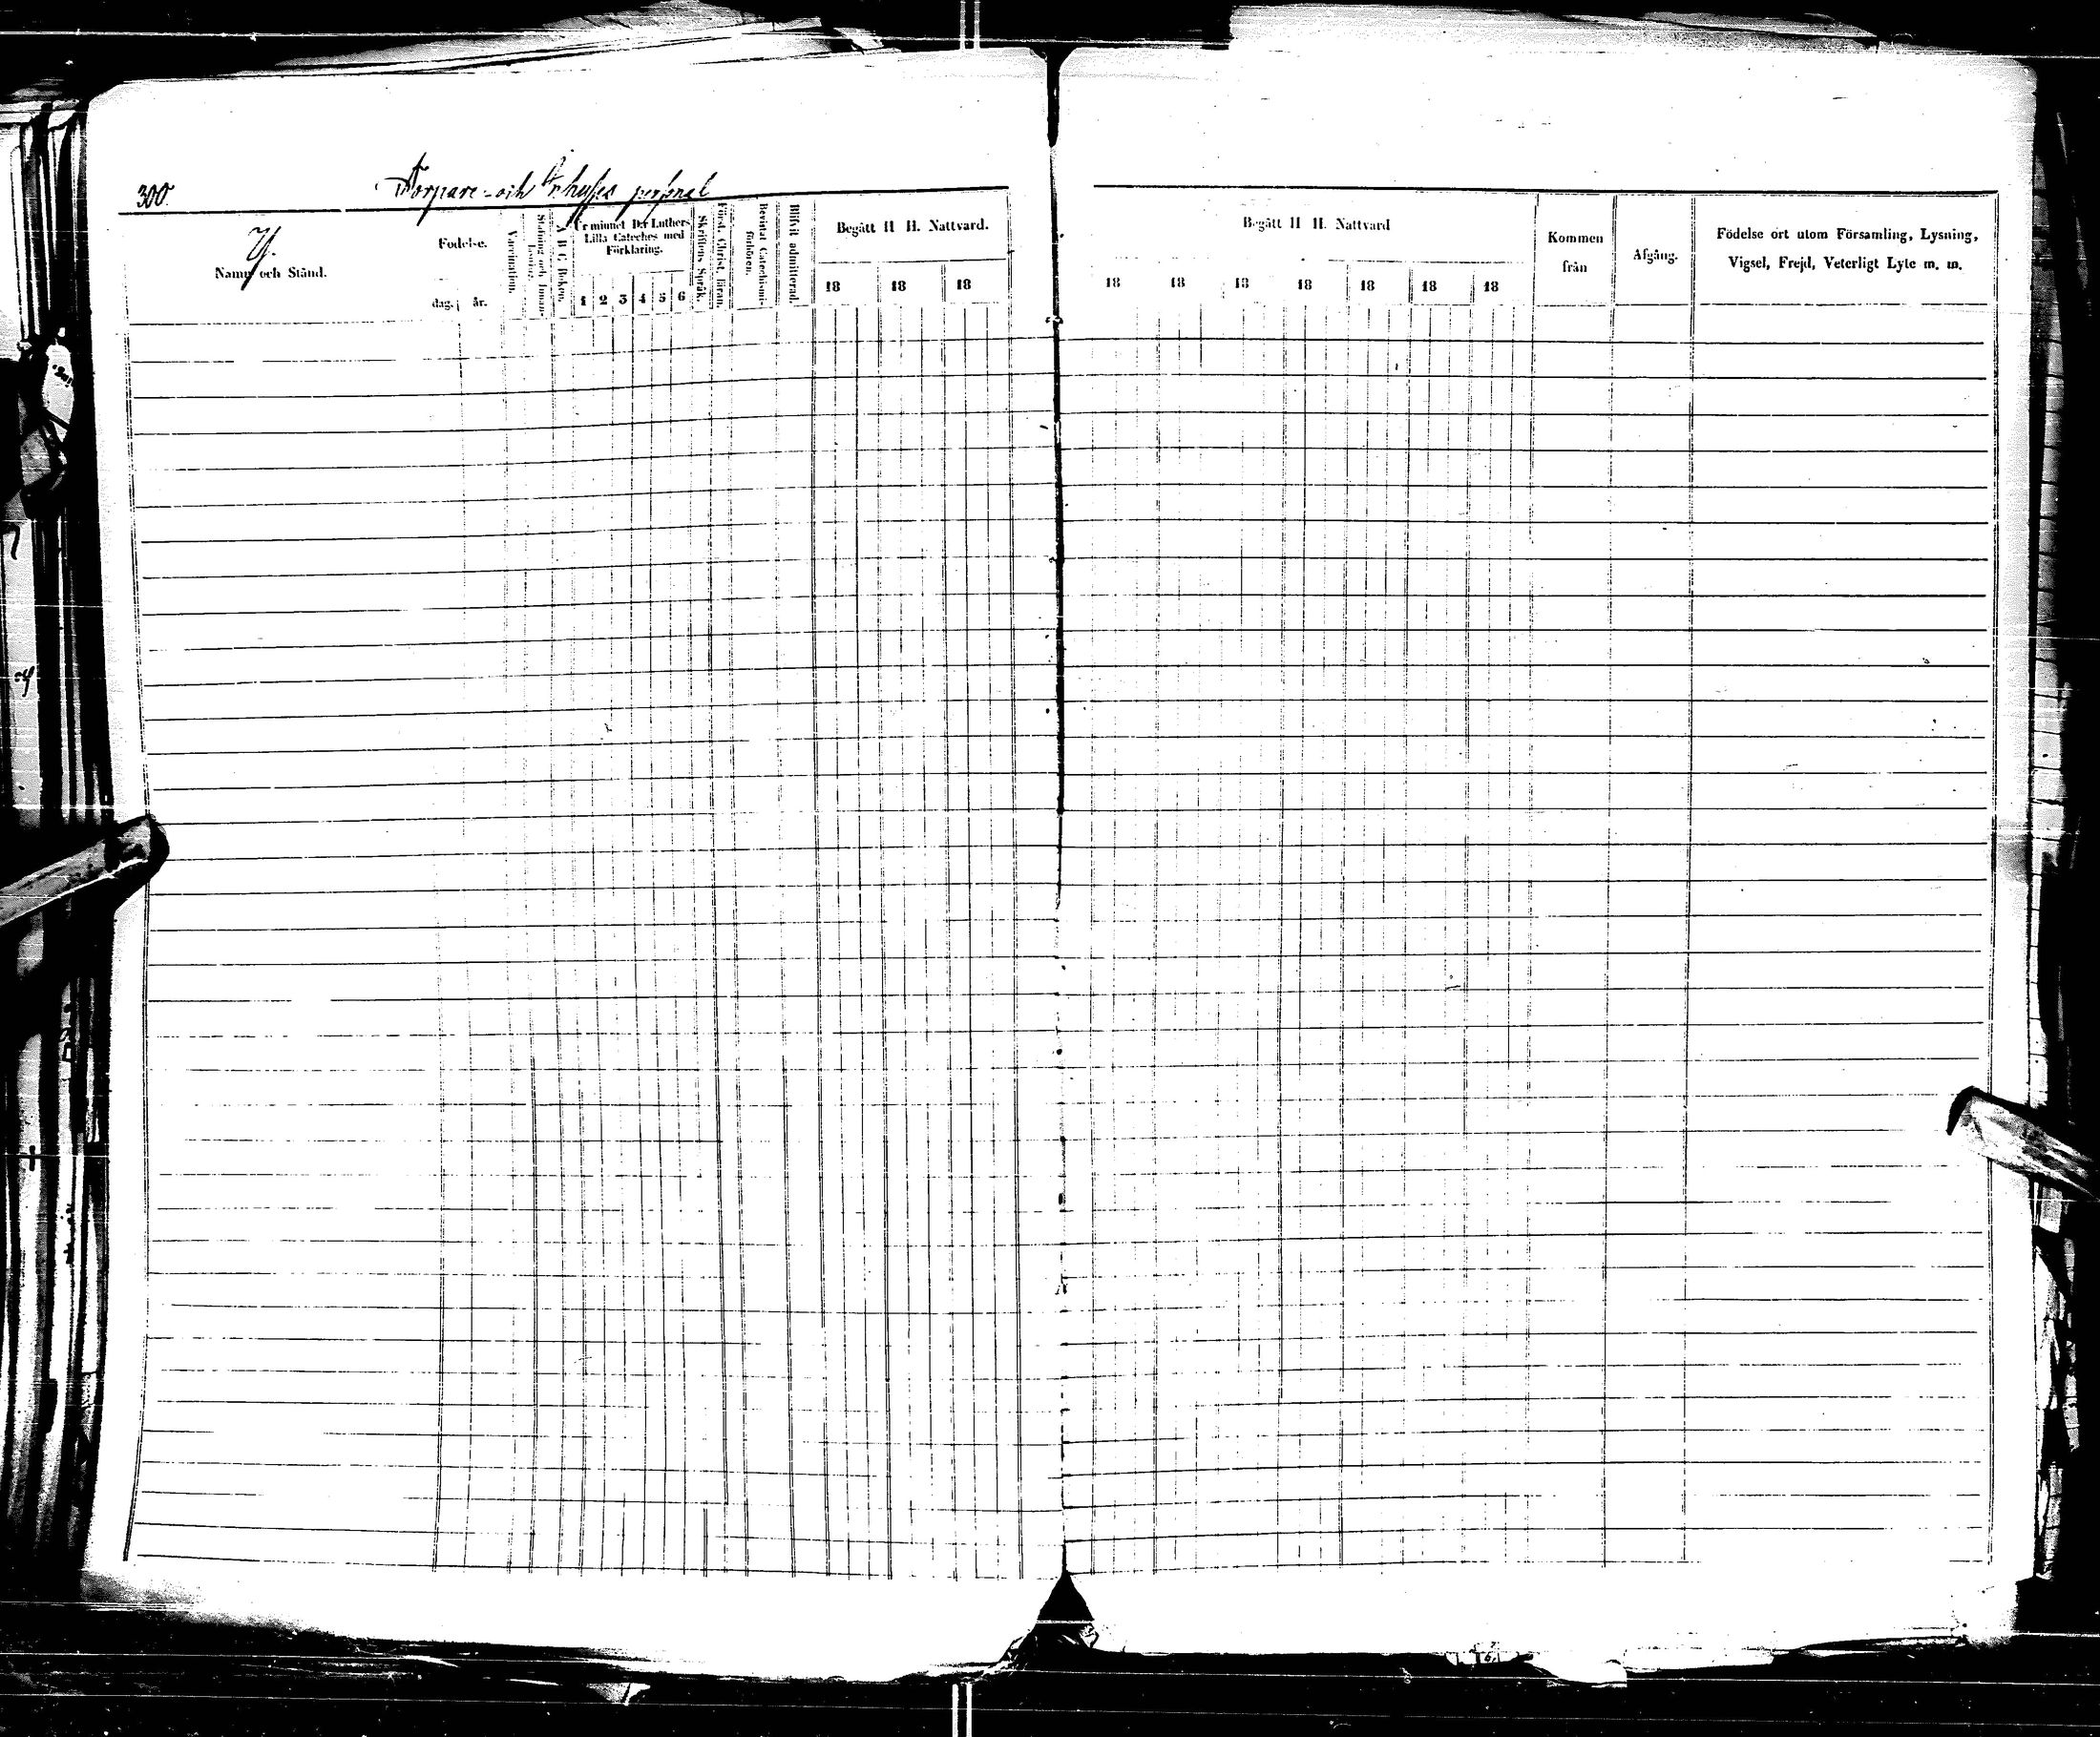 300.
Torpare- och Inhyses personal
Y.
Namn och Stånd.
Födelse.
dag. år.
Vaccination.
A B C Boken.
Ur minnet D:r Luthers
Lilla Cateches med
Förklaring.
1 2 3 4 5 6
Skriftens Språk.
Bevistat Catechismi-
förhören.
Blifvit admitterad.
Begått H H. Nattvard.
18 18 18
Begått H H. Nattvard
18 18 18 18 18 18 18
Kommen
från
Afgång.
Födelse ort utom Församling, Lysning,
Vigsel, Frejd, Veterligt Lyte m. m.